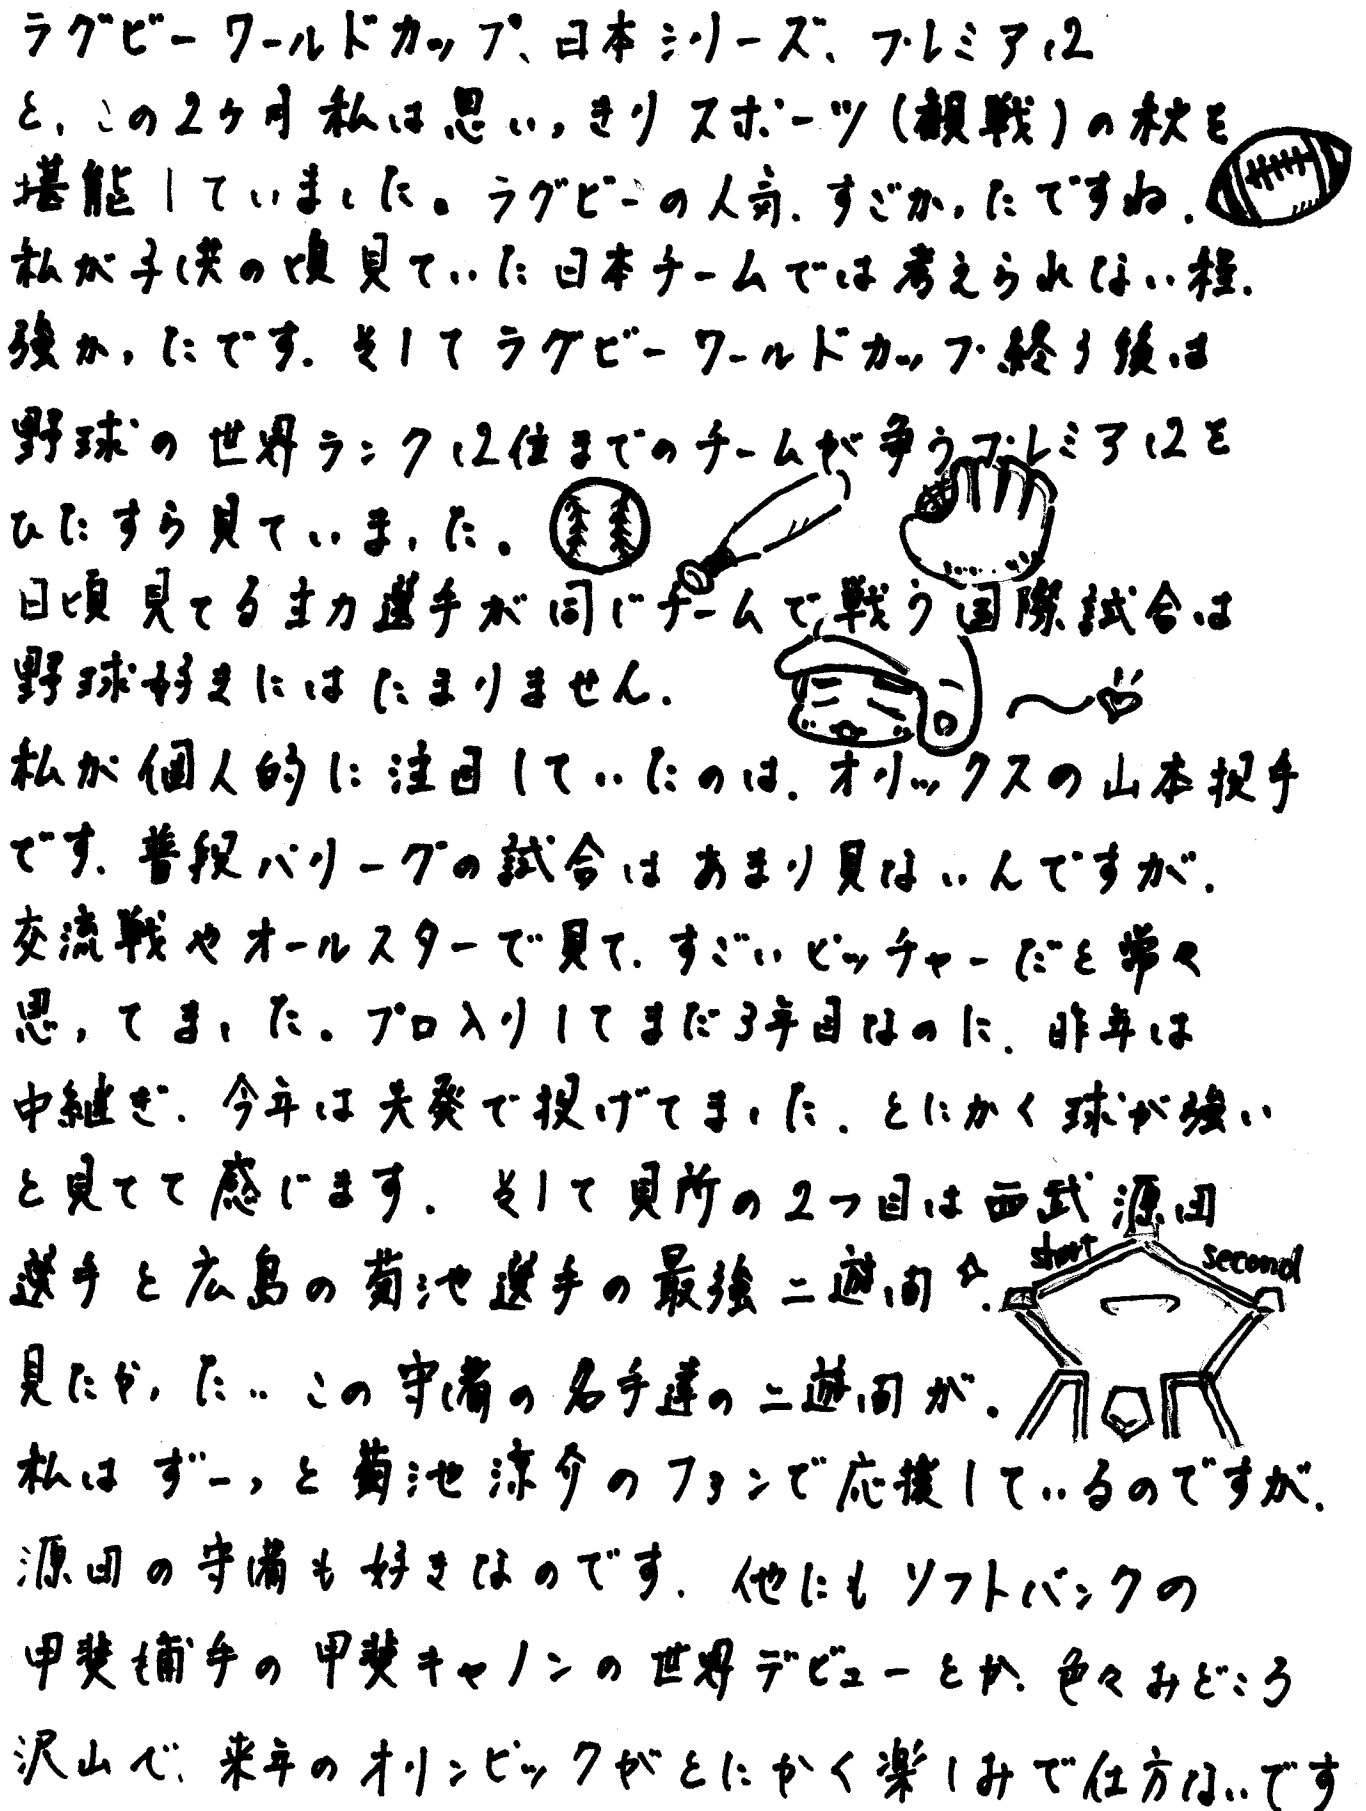 ラグビーワールドカップ、日本シリーズ、プレミア12
と、この2ヶ月私は思いっきりスポーツ(観戦)の秋を
堪能していました。ラグビーの人気、すごかったですね。
私が子供の頃見ていた日本チームでは考えられない程、
強かったです。そしてラグビーワールドカップ終了後は
野球の世界ランク12位までのチームが争うプレミア12を
ひたすら見ていました。
日頃見てる主力選手が同じチームで戦う国際試合は
野球好きにはたまりません。
私が個人的に注目していたのは、オリックスの山本投手
です。普段パリーグの試合はあまり見ないんですが、
交流戦やオールスターで見て、すごいピッチャーだと常々
思ってました。プロ入りしてまだ3年目なのに、昨年は
中継ぎ、今年は先発で投げてました。とにかく球が強い
と見てて感じます。そして見所の2つ目は西武源田
選手と広島の菊池選手の最強二遊間☆。
short
second
見たかった‥この守備の名手達の二遊間が。
私はずーっと菊池涼介のファンで応援しているのですが、
源田の守備も好きなのです。他にもソフトバンクの
甲斐捕手の甲斐キャノンの世界デビューとか、色々みどころ
沢山で、来年のオリンピックがとにかく楽しみで仕方ないです